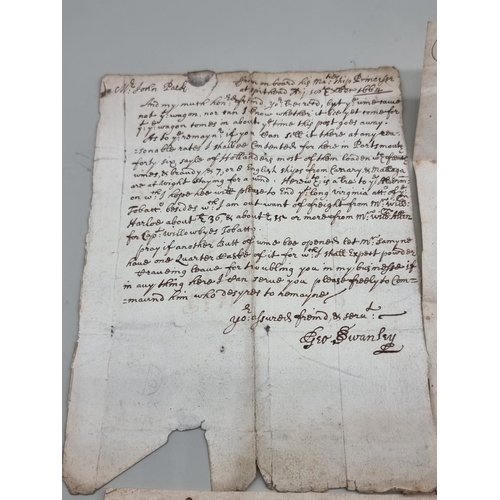 Mr. John Park
from on board his Matyes ship
at spithead 10th 1664
And my much hond freind yors received, but yr wine came
not yr wagon, nor can I know whether it bee yet come for
yr wagon comes in about time this post goes away.
As to yr remaynr, if you can sell it there at any rea-
sonable rates I shall be Contented for here in Portsmouth
forty six sayle of Hollanders most of them loaden wth
wines & brandy & 7 or 8 English ships from Canary & Mallaga
are at Wight staying for a wind. Herewth is a bre to yr
on wch I hope hee will please to End yt long virginia
Tobaccо. besides wch I am out want of freight from Mr. Will:
Harloe about £36, & about £ or more from Mr. Will Allen
for Capt. Willowbyes Tobacco
pray if another Butt of wine bee opened let Mr. Samyne
have one Quarter Caske of it for wch I shall Expect powder
Craveing leave for troubling you in my businesse if
in any thing here I can serve you please freely to Com-
-maund him who desyres to remayne
Yor assured freind & servt
Geo Swanley